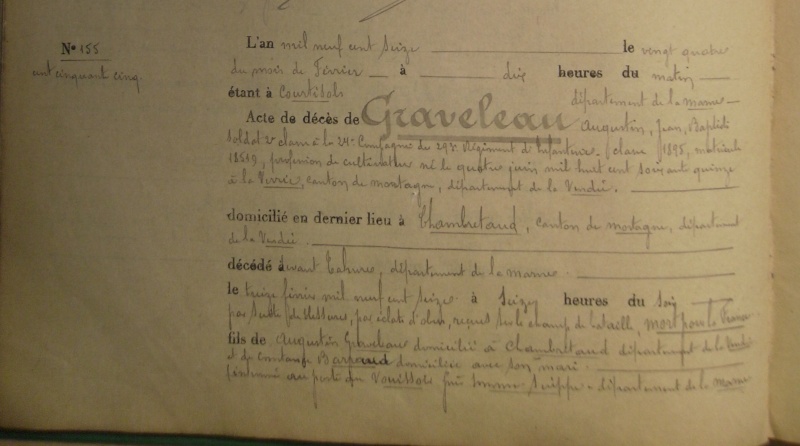 N° 155
cent cinquante cinq.
L'an mil neuf cent seize le vingt quatre
du mois de Février à dix heures du matin
étant à Courtisols département de la Marne
Acte de décès de Graveleau Augustin, Jean, Baptiste
soldat 2e classe à la 24e Compagnie du 293e Régiment d'Infanterie - classe 1895, matricule
profession de cultivateur né le quatre juin mil huit cent soixante quinze
à la Verrie, canton de mortagne, département de la Vendée.
domicilié en dernier lieu à Chambretaud, canton de mortagne, département
de la Vendée.
décédé devant Tahure, département de la marne.
le treize février mil neuf cent seize à Seize heures du Soir
par suite de blessures, par éclats d'obus, reçues sur le champ de bataille, mort pour la France
fils de Augustin Graveleau domicilié à Chambretaud département de la Vendée
et de Constance Barraud domiciliée avec son mari.
Suippe - département de la Marne